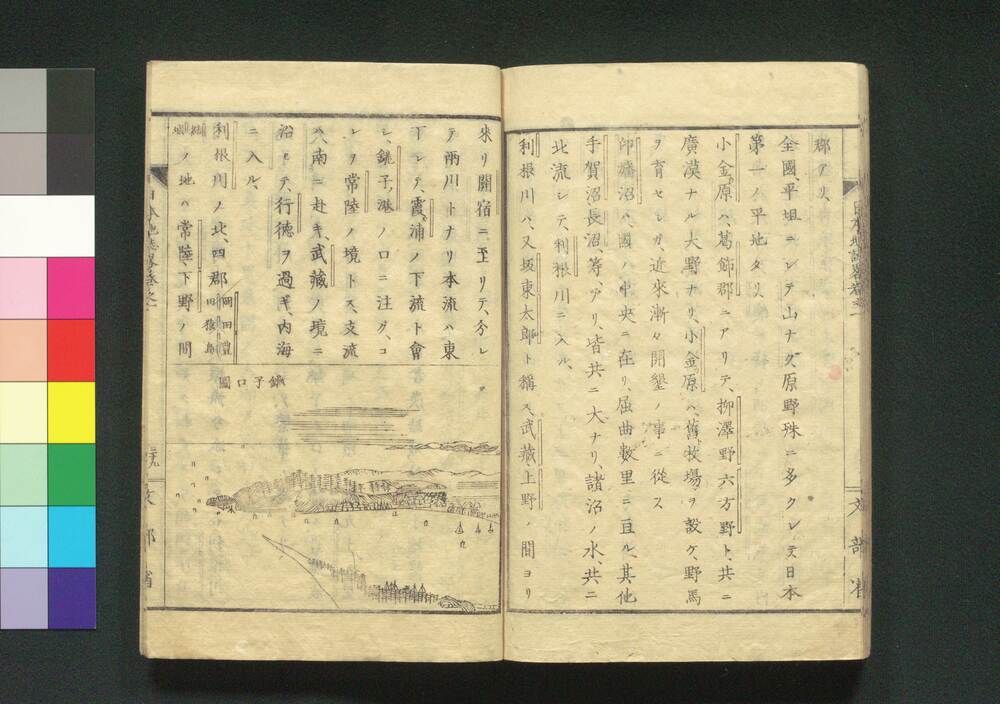 郡アリ、
全國平坦ニシテ山ナク原野殊ニ多クシテ日本
第一ノ平地タリ、
小金原ハ、葛飾郡ニアリテ、柳澤野六方野ト、共ニ
廣漠ナル大野ナリ、小金原ハ、舊牧場ヲ設ケ、野馬
ヲ育セシガ、近來漸々開墾ノ事ニ從ス
印旛沼ハ、國ノ中央ニ在リ、屈曲數里ニ亘ル、其他
手賀沼長沼、等アリ、皆共ニ大ナリ、諸沼ノ水、共ニ
北流シテ、利根川ニ入ル、
利根川ハ、又坂東太郎ト稱ス、武藏上野ノ間ヨリ
來リ關宿ニ至リテ、分レ
テ兩川トナリ本流ハ東
下シテ、霞浦ノ下流ト會
シ、銚子ノ港ノ口ニ注グ、コ
レヲ常陸ノ境トス、支流
ハ、南ニ赴キ、武藏ノ境ニ
沿ヒテ、行德ヲ過ギ、内海
ニ入ル、
利根川ノ北、四郡岡田豐田猿島結城ノ地ハ常陸、下野ノ間
銚子口圖
日本地誌略卷之一
文部省